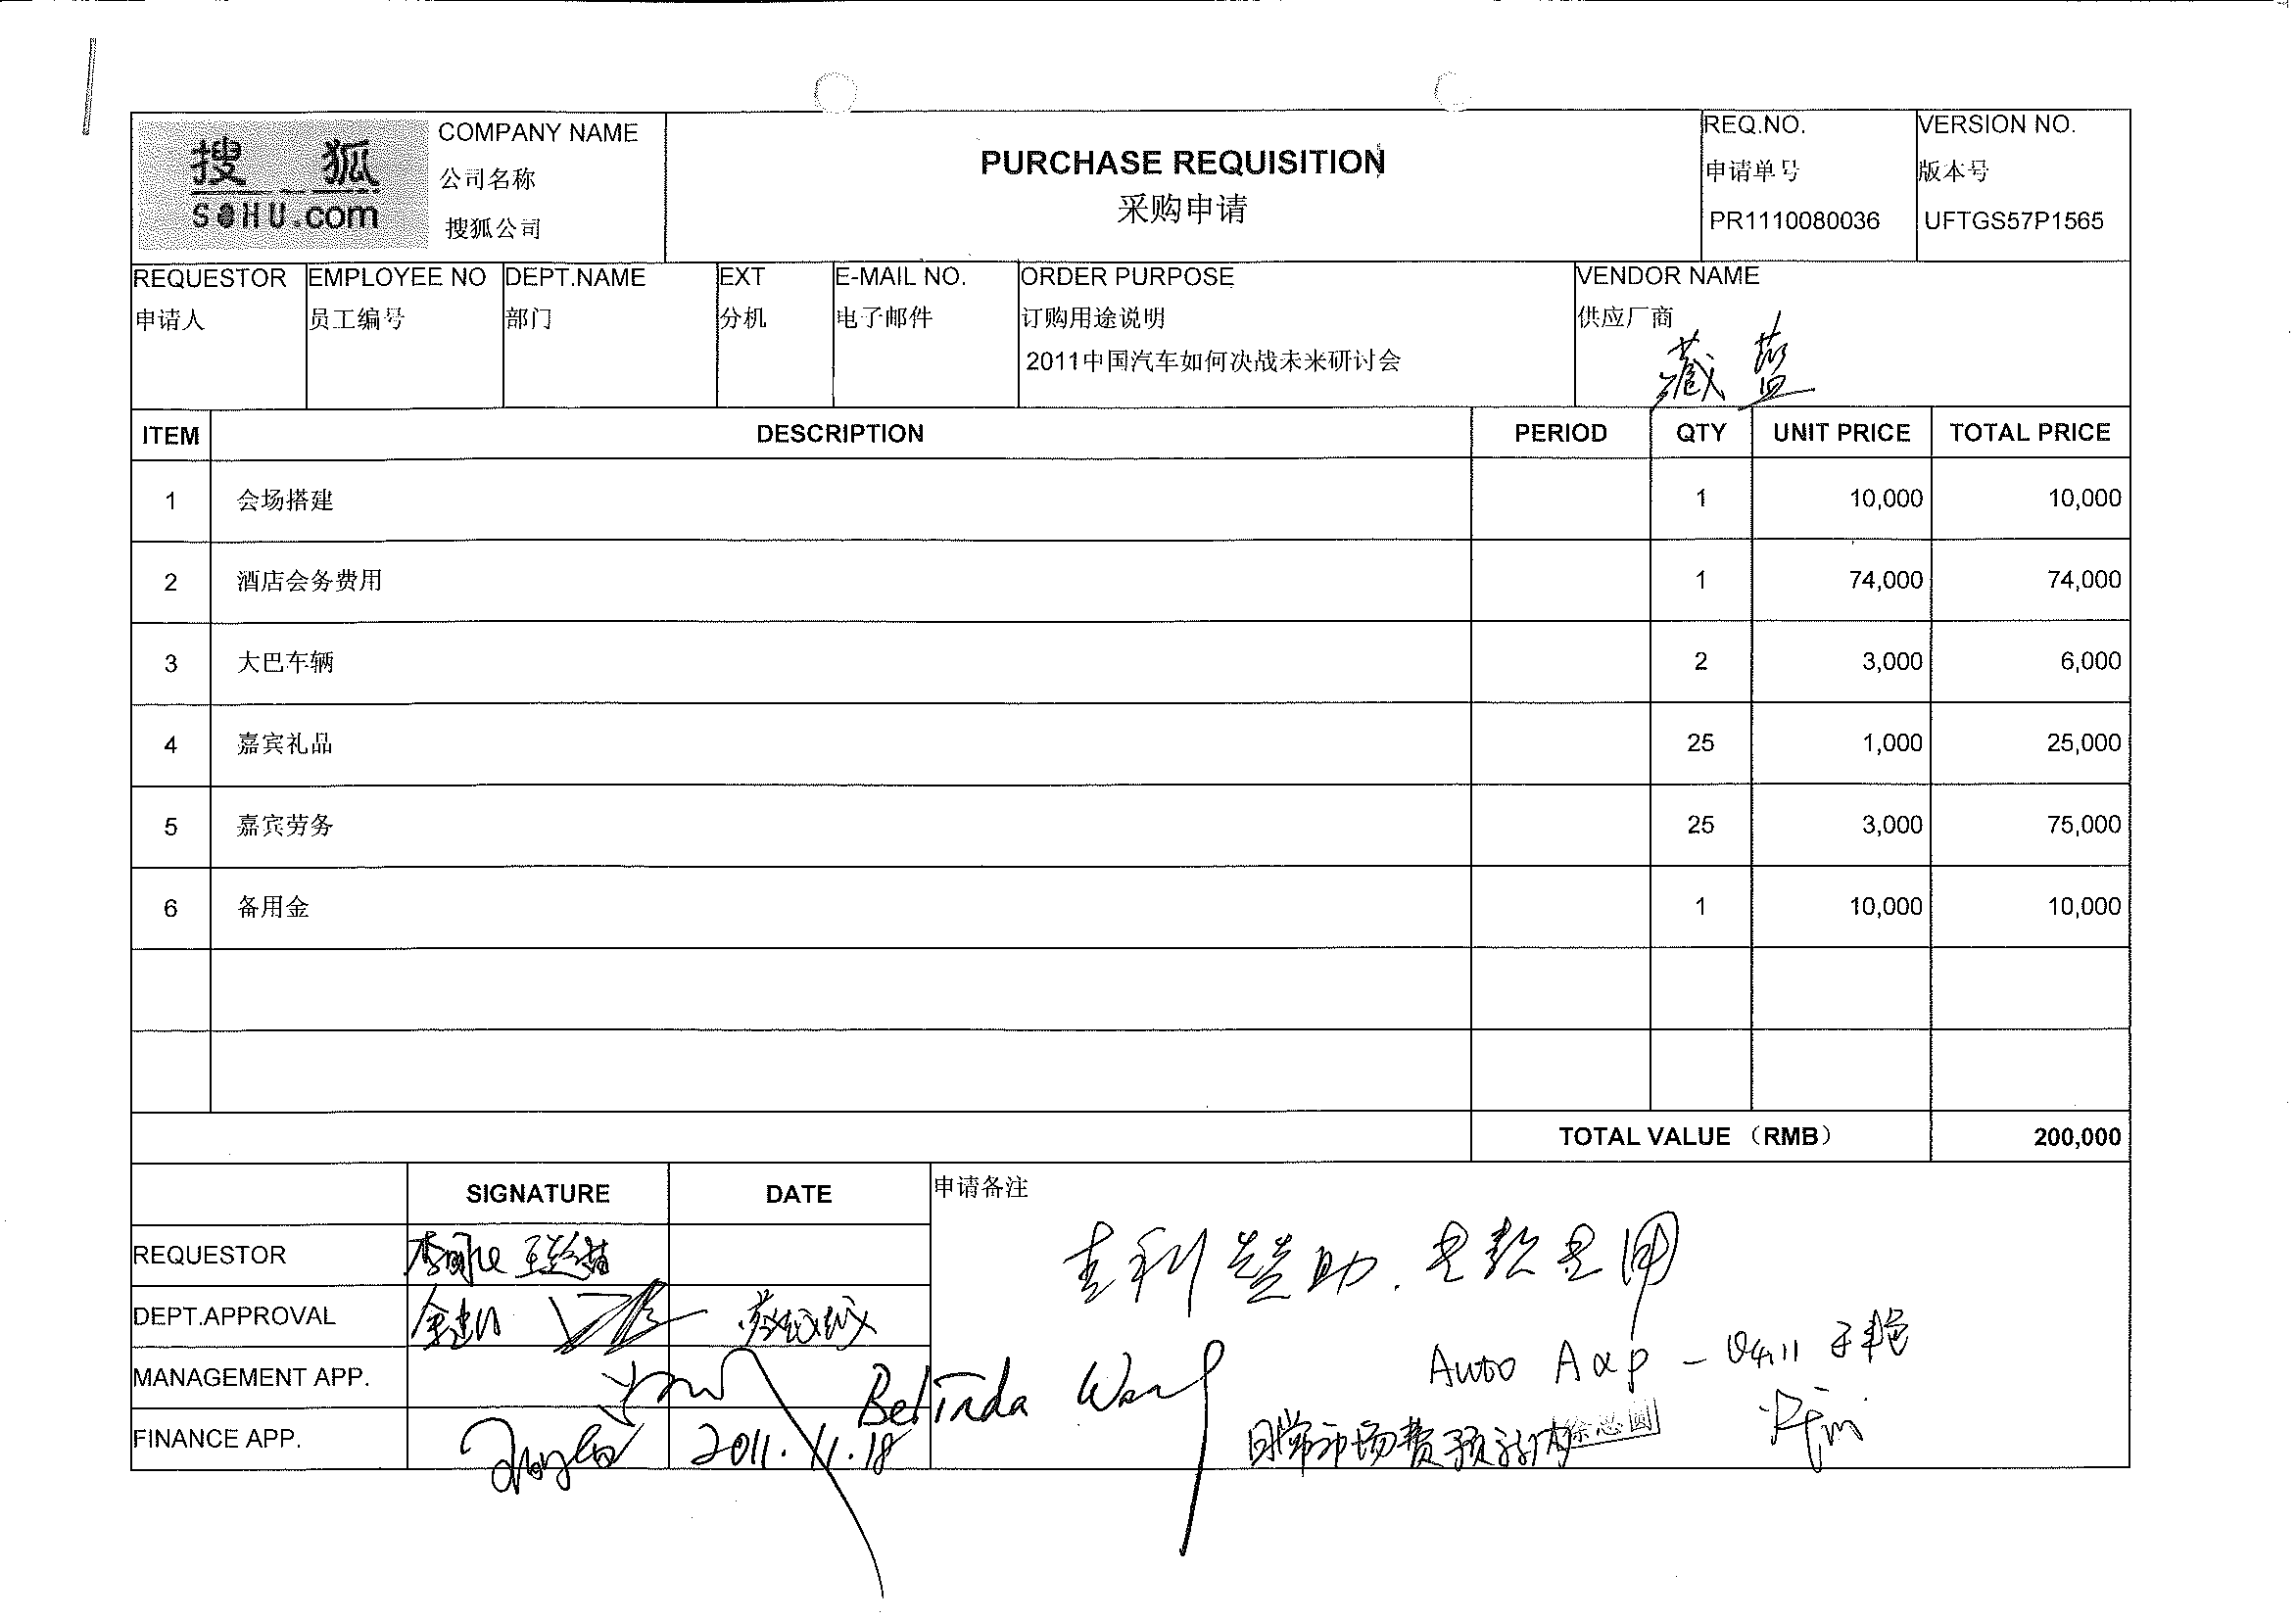 搜 狐
SOHU.com
COMPANY NAME
公司名称
搜狐公司
PURCHASE REQUISITION
采购申请
REQ.NO.
申请单号
PR1110080036
VERSION NO.
版本号
UFTGS57P1565
REQUESTOR
申请人
EMPLOYEE NO
员工编号
DEPT.NAME
部门
EXT
分机
E-MAIL NO.
电子邮件
ORDER PURPOSE
订购用途说明
2011中国汽车如何决战未来研讨会
VENDOR NAME
供应厂商
藏蓝
ITEM DESCRIPTION PERIOD QTY UNIT PRICE TOTAL PRICE
1 会场搭建 1 10,000 10,000
2 酒店会务费用 1 74,000 74,000
3 大巴车辆 2 3,000 6,000
4 嘉宾礼品 25 1,000 25,000
5 嘉宾劳务 25 3,000 75,000
6 备用金 1 10,000 10,000
TOTAL VALUE（RMB） 200,000
SIGNATURE DATE
REQUESTOR
DEPT.APPROVAL
MANAGEMENT APP.
FINANCE APP. 2011.11.18
申请备注
吉利赞助.专款专用
Auto A&P -
Belinda Wang
日常市场费预算内